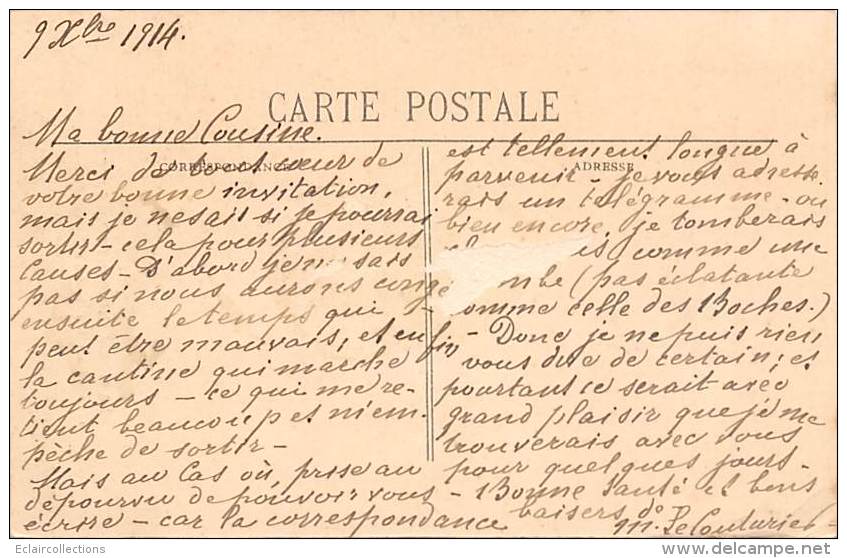 9 Xbre 1914.
CARTE POSTALE
Ma bonne Cousine.
CORRESPONDANCE
Merci de tout cœur de
votre bonne invitation,
mais je ne sait si je pourrai
sortir – cela pour plusieurs
Causes – D'abord je ne sais
pas si nous aurons congé
ensuite le temps qui
peut être mauvais, et enfin
la cantine qui marche
toujours – ce qui me re-
tient beaucoup et m'em-
pêche de sortir –
Mais au Cas où, prise au
dépourvu de pouvoir vous
écrire – car la correspondance
ADRESSE
est tellement longue à
parvenir – je vous adresse-
rais un télégramme – ou
bien encore, je tomberais
comme une
(pas éclatante
comme celle des Boches.)
– Donc je ne puis rien
vous dire de certain; et
pourtant ce serait avec
grand plaisir que je me
trouverais avec vous
pour quelques jours.
– Bonne Santé et bons
baisers de
M. Le Couturier
Eclaircollections
http://eclaircollections.delcampe.net